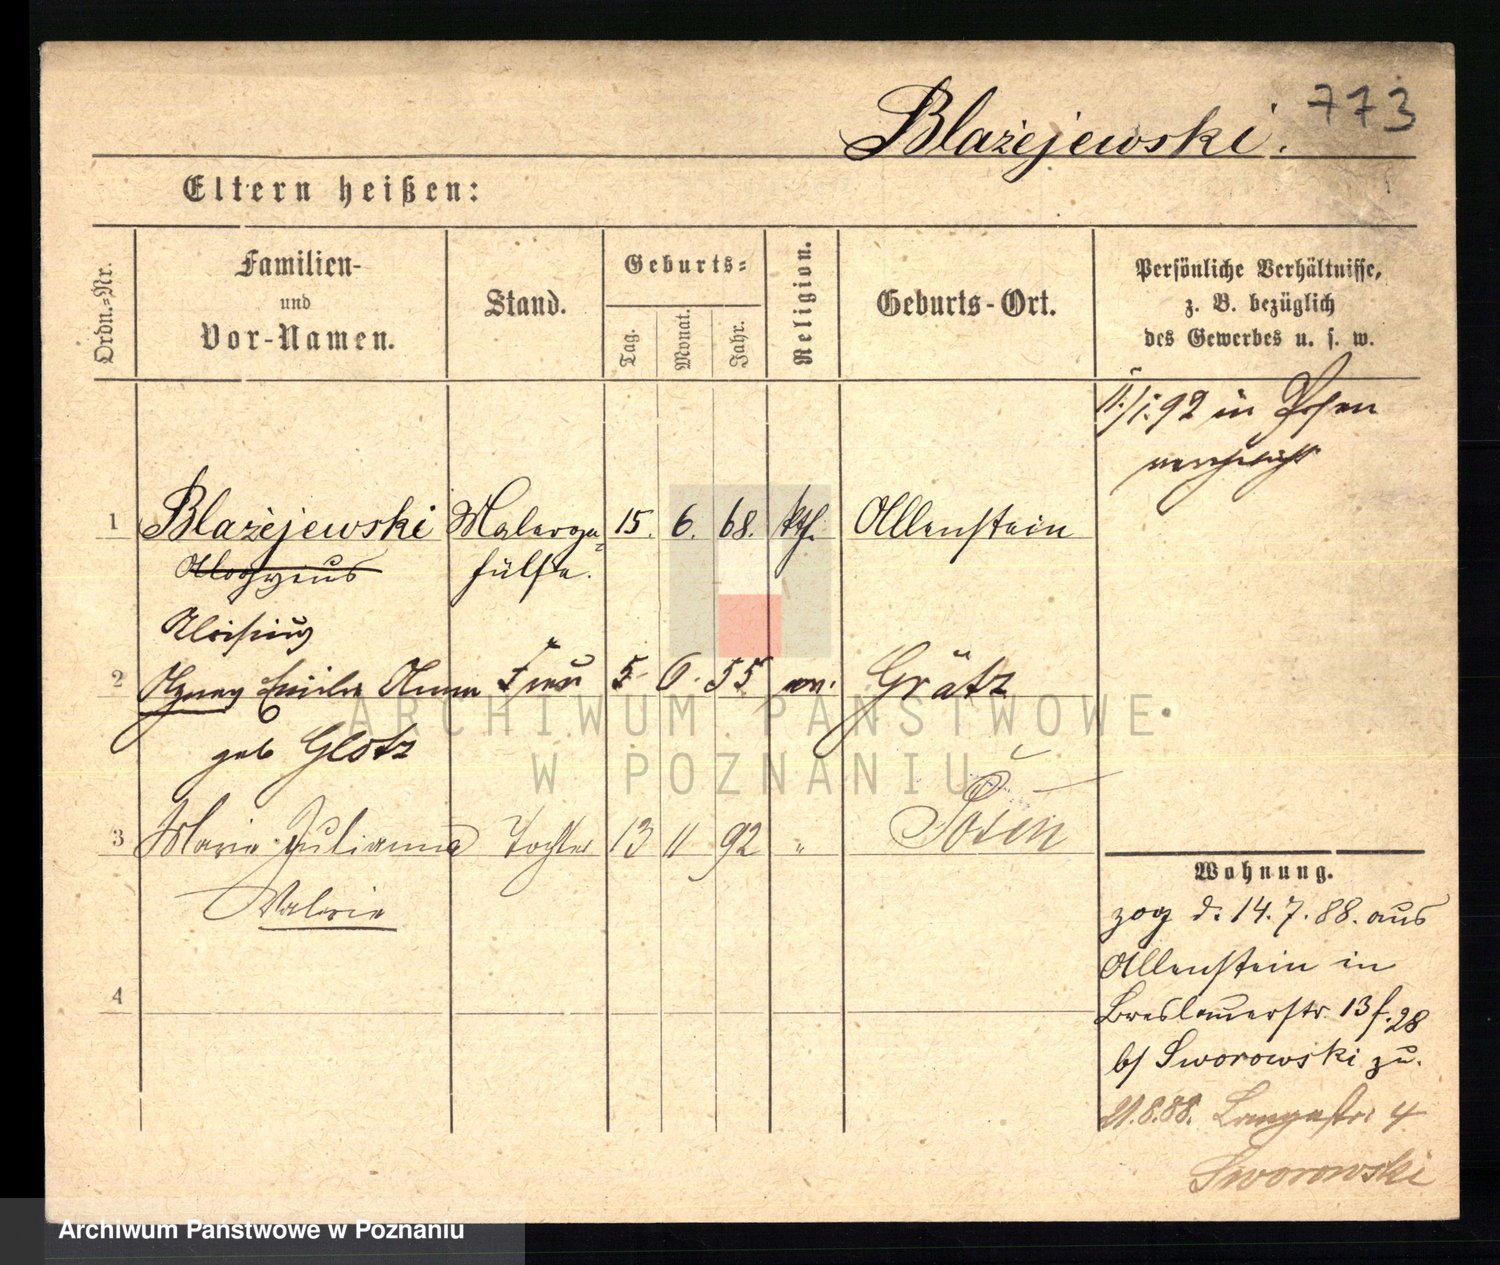 773
Blażejewski.
Eltern heißen:
Ordn.-Nr.
Familien-
und
Vor-Namen.
Stand.
Geburts-
Tag.
Monat.
Jahr.
Religion.
Geburts-Ort.
Persönliche Verhältnisse,
z. B. bezüglich
des Gewerbes u. s. w.
11/1.92 in Posen
1 Blażejewski Malerge- 15. 6. 68. kth. Allenstein
hülfe.
Aloisius
2 Agnes Emilie Anna Frau 5 6. 55 ev. Grätz
geb Glotz
3 Marie Julianna Tochter 13 11 92 " Posen
Valerie
4
Wohnung.
zog d. 14.7.88. aus
Allenstein in
Breslauerstr. 13 f. 28
b/ Sworowski zu.
21.8.88. Langestr. 4
Sworowski
ARCHIWUM PAŃSTWOWE
W POZNANIU
Archiwum Państwowe w Poznaniu